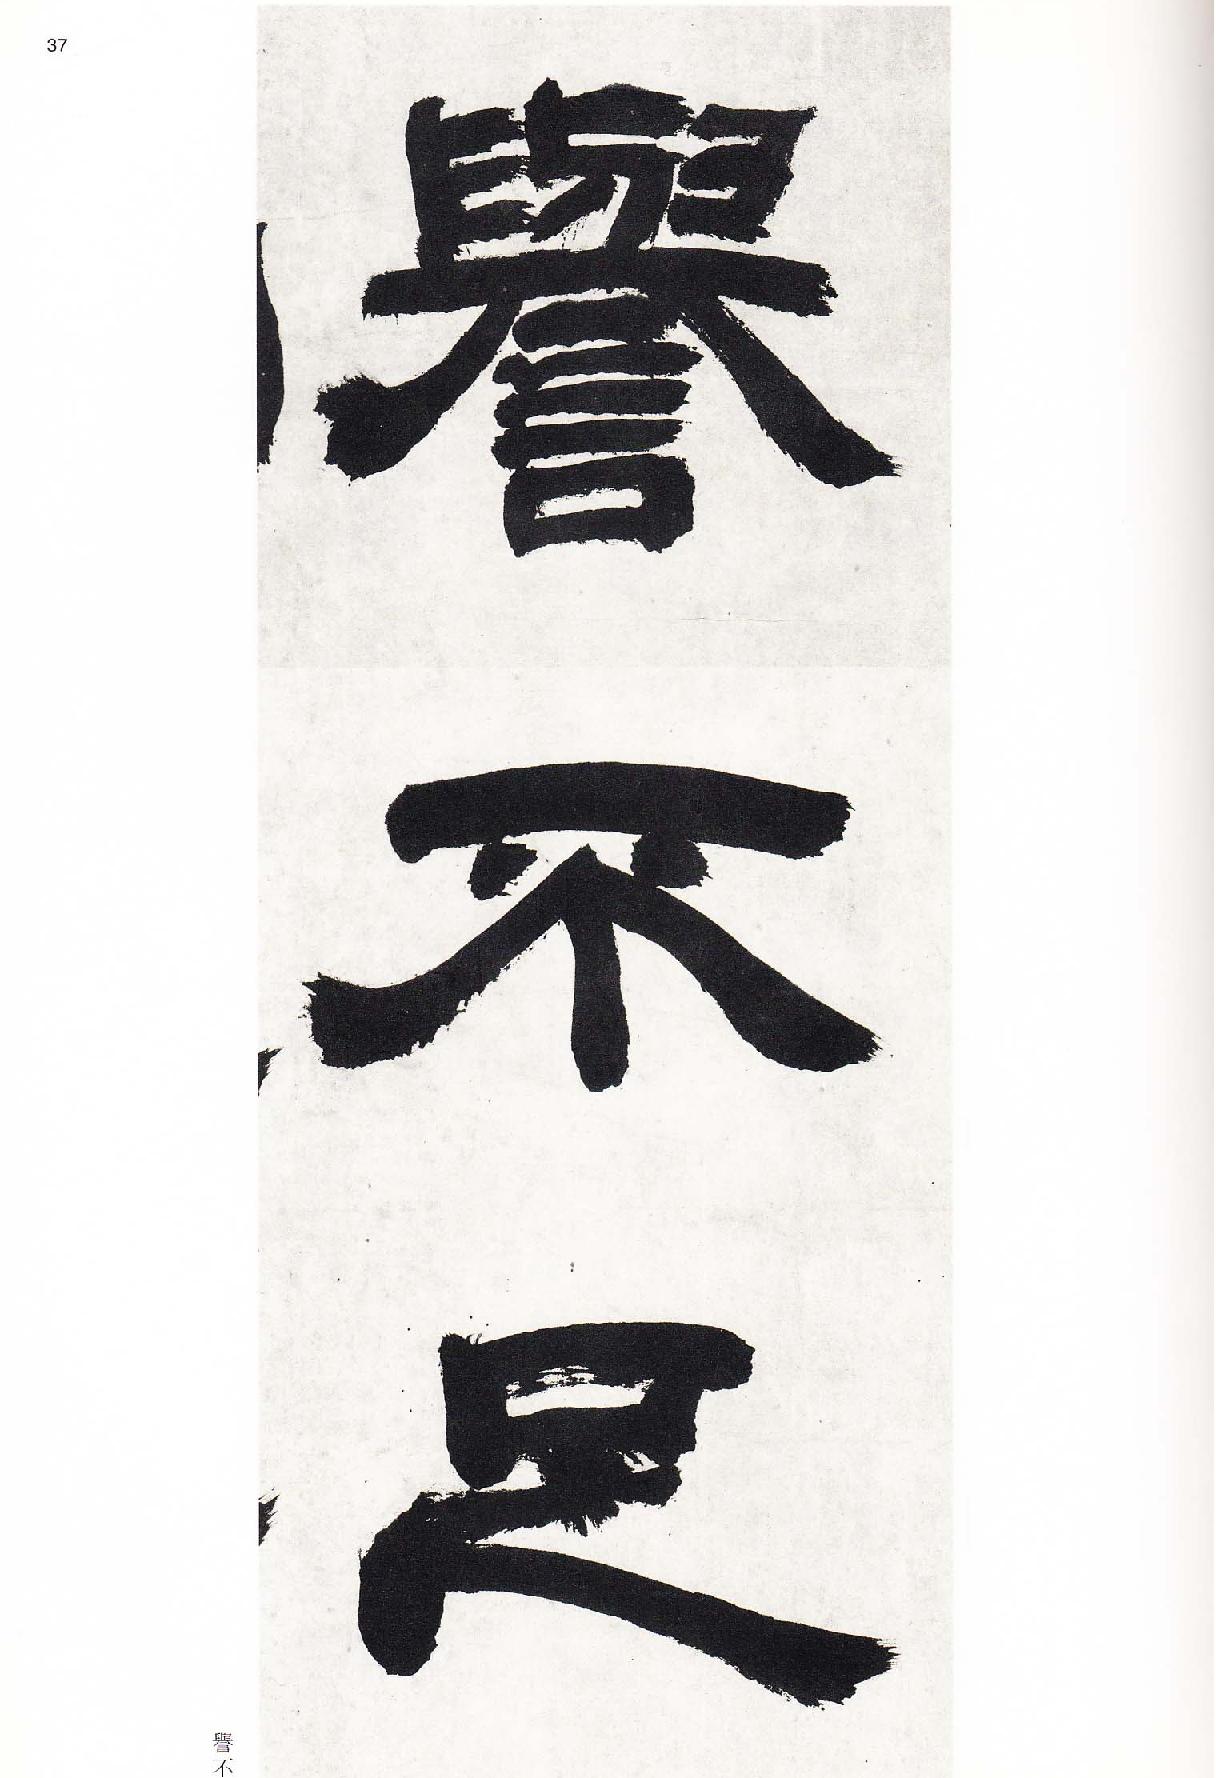 37
譽不足
譽不